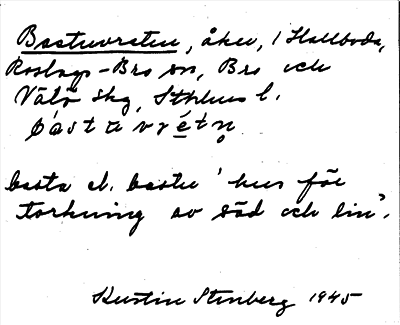 Bastuvreten, åker, i Hallboda,
Roslags-Bro sn, Bro och
Välö skg, Sthlms l.
básta vrétn̥
basta el. bastu 'hus för
torkning av säd och lin'.
Kerstin Stenberg 1945